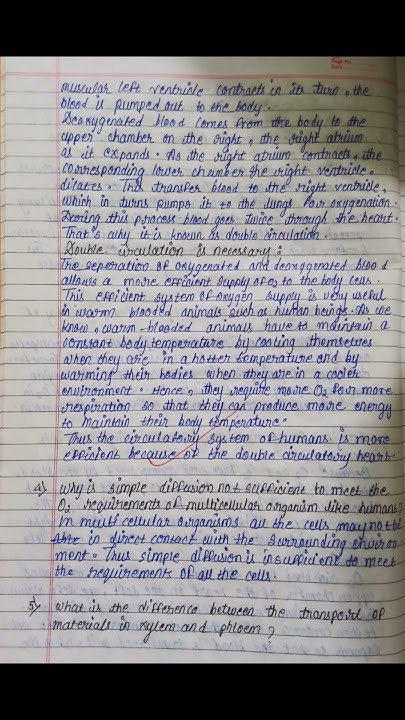 muscular left ventricle contracts in its turn, the
blood is pumped out to the body.
Deoxygenated blood comes from the body to the
upper chamber on the right, the right atrium
as it expands. As the right atrium contracts, the
corresponding lower chamber the right ventricle,
dilates. This transfer blood to the right ventricle,
which in turns pumps it to the lungs for oxygenation.
During this process blood goes twice through the heart.
That's why it is known as double circulation.
Double circulation is necessary:
The seperation of oxygenated and deoxygenated blood
allows a more efficient supply of O2 to the body cells.
This efficient system of oxygen supply is very useful
in warm blooded animals such as human beings. As we
know, warm-blooded animals have to maintain a
constant body temperature by cooling themselves
when they are in a hotter temperature and by
warming their bodies when they are in a cooler
environment. Hence, they require more O2 for more
respiration so that they can produce more energy
to maintain their body temperature.
Thus the circulatory system of humans is more
efficient because of the double circulatory heart.
4) Why is simple diffusion not sufficient to meet the
O2 requirements of multicellular organism like humans?
In multi cellular organisms all the cells may not be
in direct contact with the surrounding environ-
ment. Thus simple diffusion is insufficient to meet
the requirement of all the cells.
5) What is the difference between the transport of
materials in xylem and phloem?